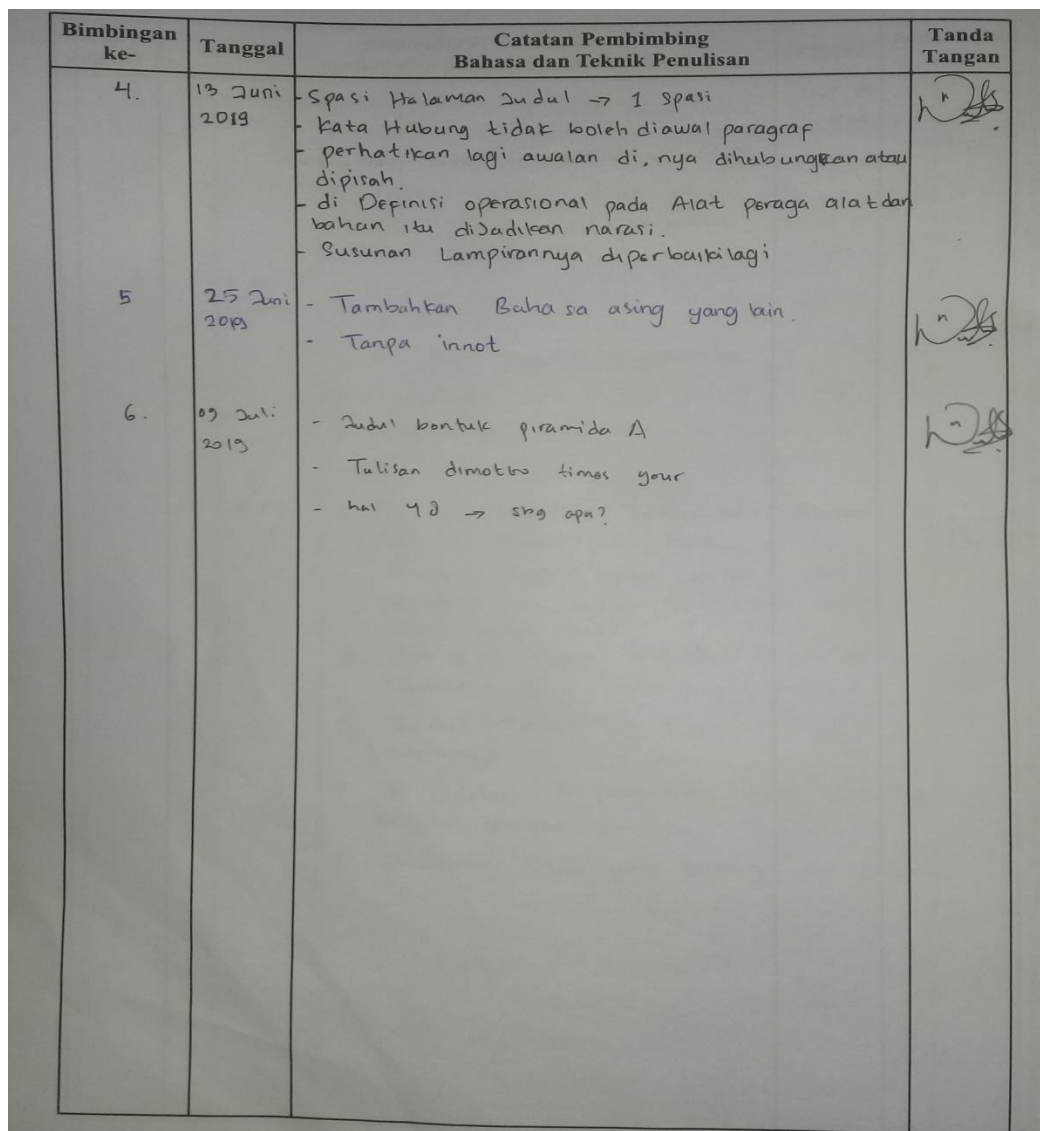 Bimbingan ke-
Tanggal
Catatan Pembimbing
Bahasa dan Teknik Penulisan
Tanda Tangan
4.
13 Juni 2019
- Spasi Halaman Judul → 1 spasi
- Kata Hubung tidak boleh diawal paragraf
- perhatikan lagi awalan di, nya dihubungkan atau
dipisah.
- di Definisi operasional pada Alat peraga alat dan
bahan itu dijadikan narasi.
- Susunan Lampirannya diperbaiki lagi
5
25 Juni 2019
- Tambahkan Bahasa asing yang lain.
- Tanpa innot
6.
09 Juli 2019
- Judul bentuk piramida
- Tulisan times
- hal → sbg apa?